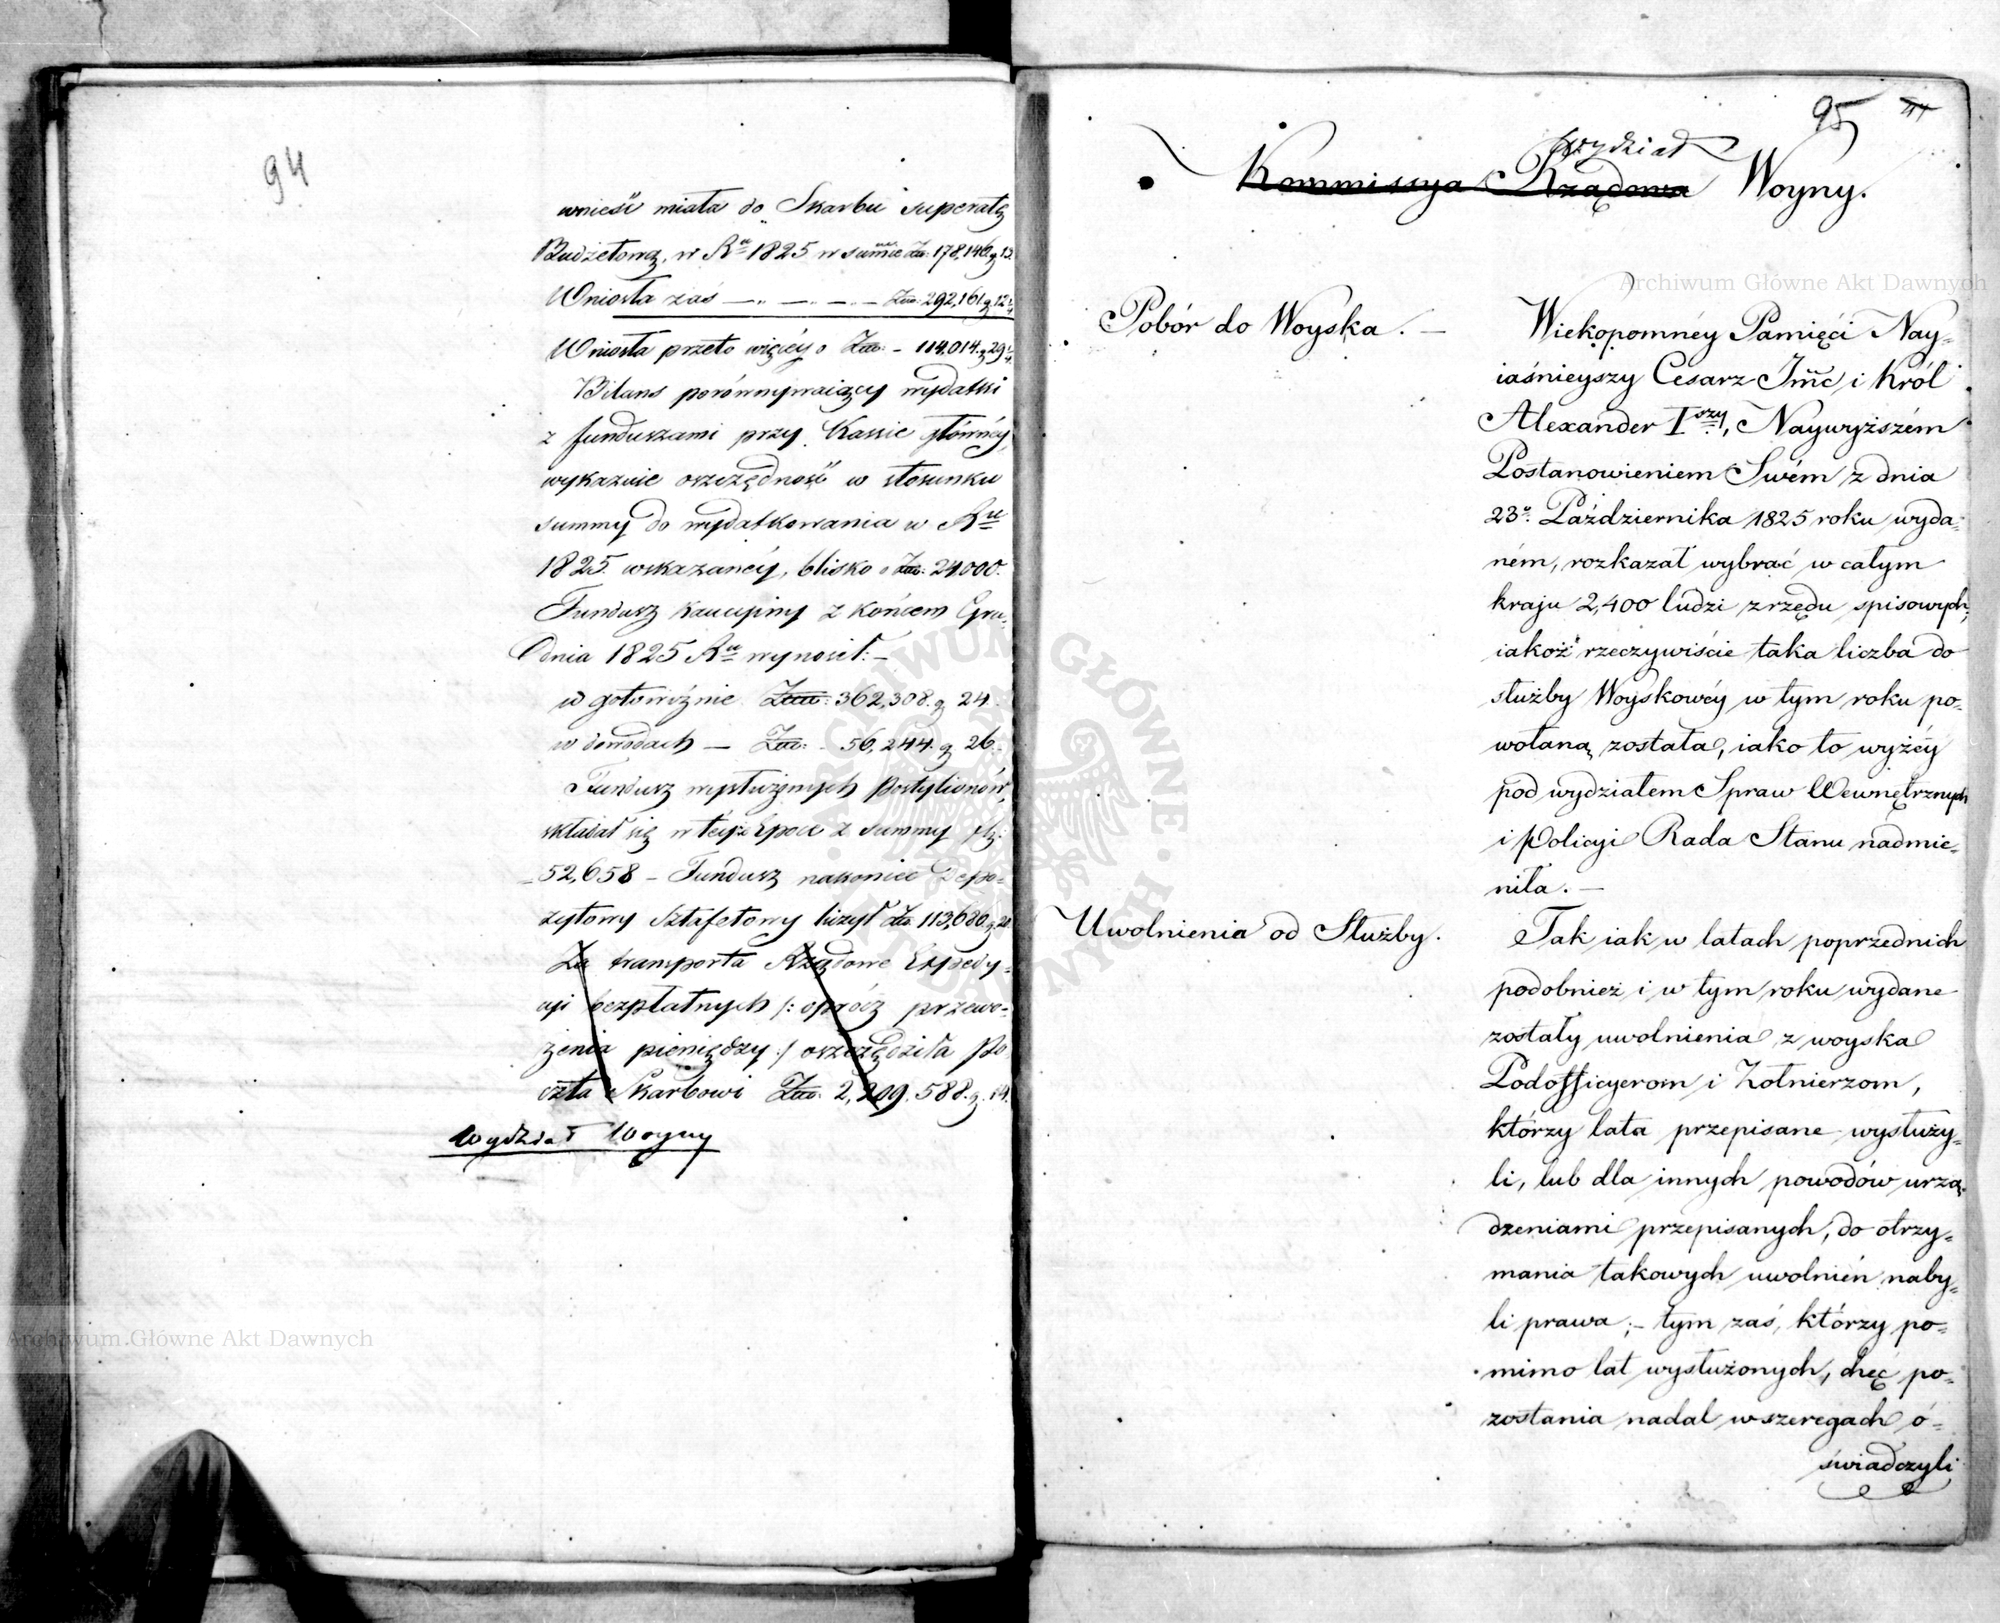 94
wnieść miała do Skarbu superatę
Budżetową, w Ru 1825 w summie Złł: 178,146 g 13
Wniosła zaś — „ — „ — „ — Złł: 292,161 g 12
Wniosła przeto więcéj o Złł: - 114,014 g 29
Bilans porównywaiący wydatki
z funduszami przy Kassie głównéy,
wykazuie oszczędność w stosunku
summy do wydatkowania w Ru
1825 wskazanéy, blisko o Złł: 24,000.
Fundusz kaucyiny z końcem Gru-
dnia 1825 Ru wynosił: -
w gotowiźnie Złł: 362,308. g 24.
w dowodach — Złł: - 56,244. g 26.
Fundusz wysłużonych Postylionów,
składał się w teyże Epoce z summy
52,658 - Fundusz nakoniec Depo-
zytowy Sztafetowy liczył Złł: 113,680 g 20.
Za transporta Rządowe Expedy-
cyi bezpłatnych /: oprócz przewo-
żenia pieniędzy :/ oszczędziła Po
czta Skarbowi Złł: 2,209,588. g. 14.
Wydział Woyny
95
Wydział
Kommissya Rządowa Woyny.
Archiwum Główne Akt Dawnych
Pobór do Woyska. —
Wiekopomnéy Pamięci Nay=
iaśnieyszy Cesarz Jmć i Król
Alexander Iszy, Naywyższém
Postanowieniem Swém z dnia
23o Października 1825 roku wyda=
ném, rozkazał wybrać w całym
kraju 2,400 ludzi z rzędu spisowych;
iakoż rzeczywiście taka liczba do
służby Woyskowéy w tym roku po=
wołaną została, iako to wyżéy
pod wydziałem Spraw Wewnętrznych
i Policyi Rada Stanu nadmie=
niła. —
Uwolnienia od Służby.
Tak iak w latach poprzednich
podobnież i w tym roku wydane
zostały uwolnienia z woyska
Podofficyerom i Żołnierzom,
którzy lata przepisane wysłuży=
li, lub dla innych powodów urzą=
dzeniami przepisanych, do otrzy=
mania takowych uwolnień naby=
li prawa; - tym zaś, którzy po=
mimo lat wysłużonych, chęć po=
zostania nadal w szeregach o=
świadczyli
Archiwum Główne Akt Dawnych
ARCHIWUM GŁÓWNE AKT DAWNYCH